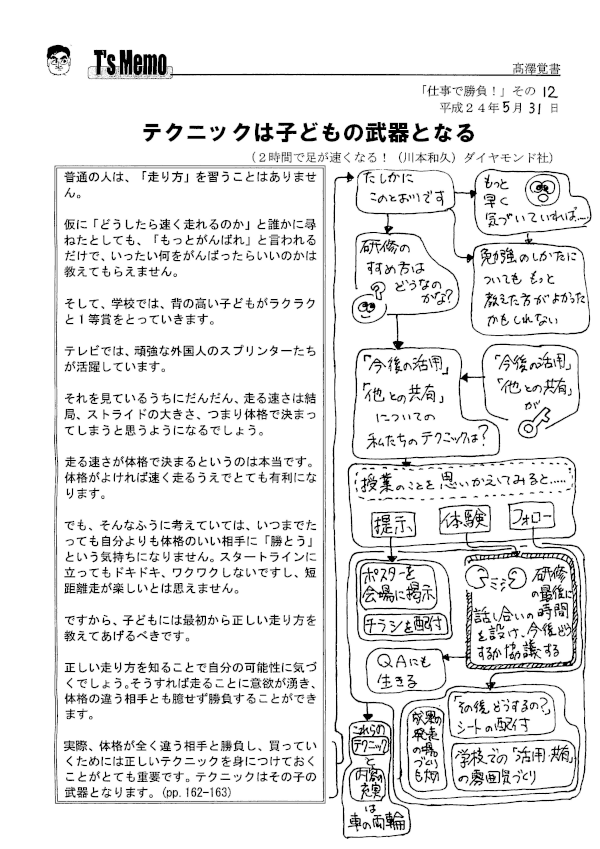 T's Memo
高澤覚書
「仕事で勝負！」その 12
平成２４年 5月 31 日
テクニックは子どもの武器となる
（２時間で足が速くなる！（川本和久）ダイヤモンド社）
普通の人は、「走り方」を習うことはありませ
ん。
仮に「どうしたら速く走れるのか」と誰かに尋
ねたとしても、「もっとがんばれ」と言われる
だけで、いったい何をがんばったらいいのかは
教えてもらえません。
そして、学校では、背の高い子どもがラクラク
と１等賞をとっていきます。
テレビでは、頑強な外国人のスプリンターたち
が活躍しています。
それを見ているうちにだんだん、走る速さは結
局、ストライドの大きさ、つまり体格で決まっ
てしまうと思うようになるでしょう。
走る速さが体格で決まるというのは本当です。
体格がよければ速く走るうえでとても有利にな
ります。
でも、そんなふうに考えていては、いつまでた
っても自分よりも体格のいい相手に「勝とう」
という気持ちになりません。スタートラインに
立ってもドキドキ、ワクワクしないですし、短
距離走が楽しいとは思えません。
ですから、子どもには最初から正しい走り方を
教えてあげるべきです。
正しい走り方を知ることで自分の可能性に気づ
くでしょう。そうすれば走ることに意欲が湧き、
体格の違う相手とも臆せず勝負することができ
ます。
実際、体格が全く違う相手と勝負し、買ってい
くためには正しいテクニックを身につけておく
ことがとても重要です。テクニックはその子の
武器となります。(pp.162-163)
たしかに
このとおりです
もっと
早く
気づいていれば….
研修の
すすめ方は
どうなの
かな？
勉強のしかたに
ついても もっと
教えた方がよかった
かもしれない
「今後の活用」
「他との共有」
についての
私たちのテクニックは？
「今後の活用」
「他との共有」
が
授業のことを思いかえしてみると.....
提示、
体験
フォロー
ポスターを
会場に掲示
チラシを配付
研修
の最後に
話し合いの時間
を設け、今後どう
するか協議する
QAにも
生きる
「その後どうするの？」
シートの配付
学校での「活用・共有」
の雰囲気づくり
成果の
発表
の場
づくり
も大切
これらの
テクニック
と
内容の
充実
は
車の両輪